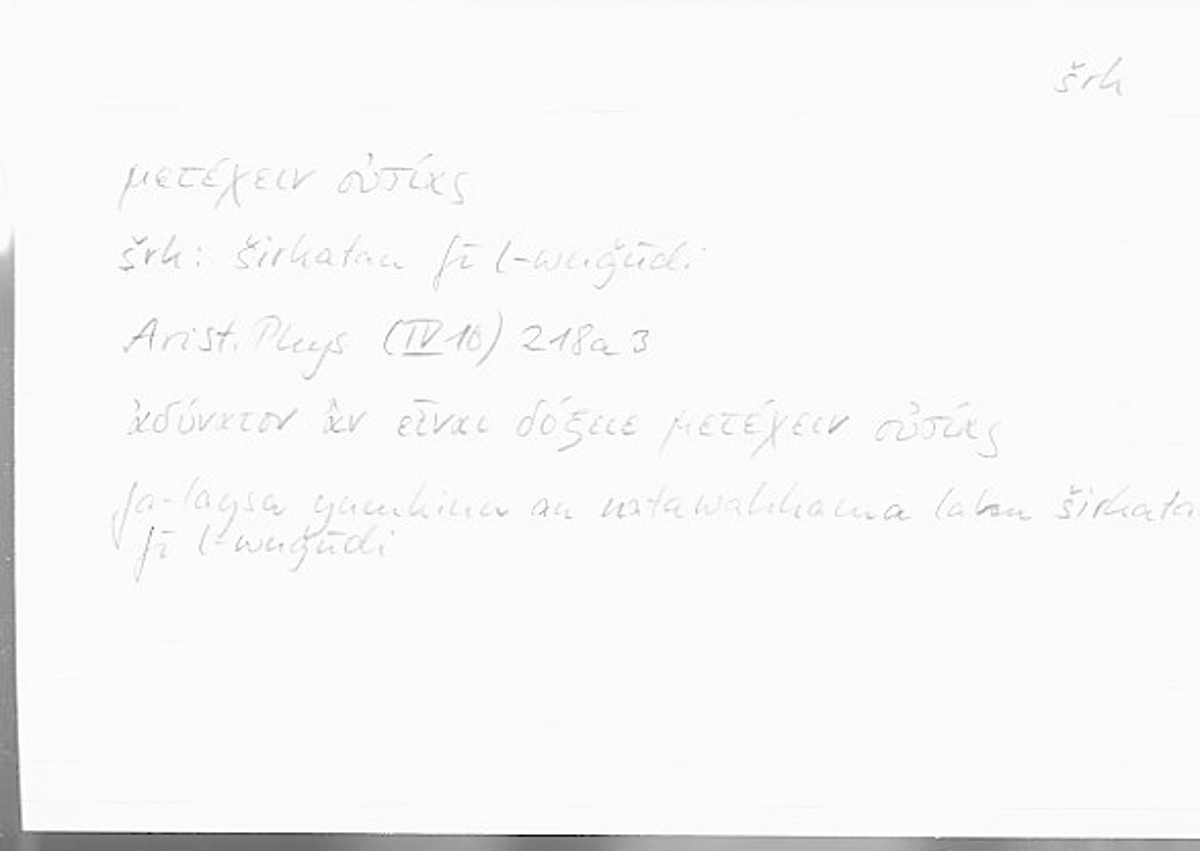 šrk
μετέχειν οὐσίας
šrk: širkatan fī l-wuǧūdi
Arist. Phys (IV 10) 218a3
ἀδύνατον ἂν εἶναι δόξειε μετέχειν οὐσίας
fa-laysa yumkinu an natawahhama lahu širkata
fī l-wuǧūdi